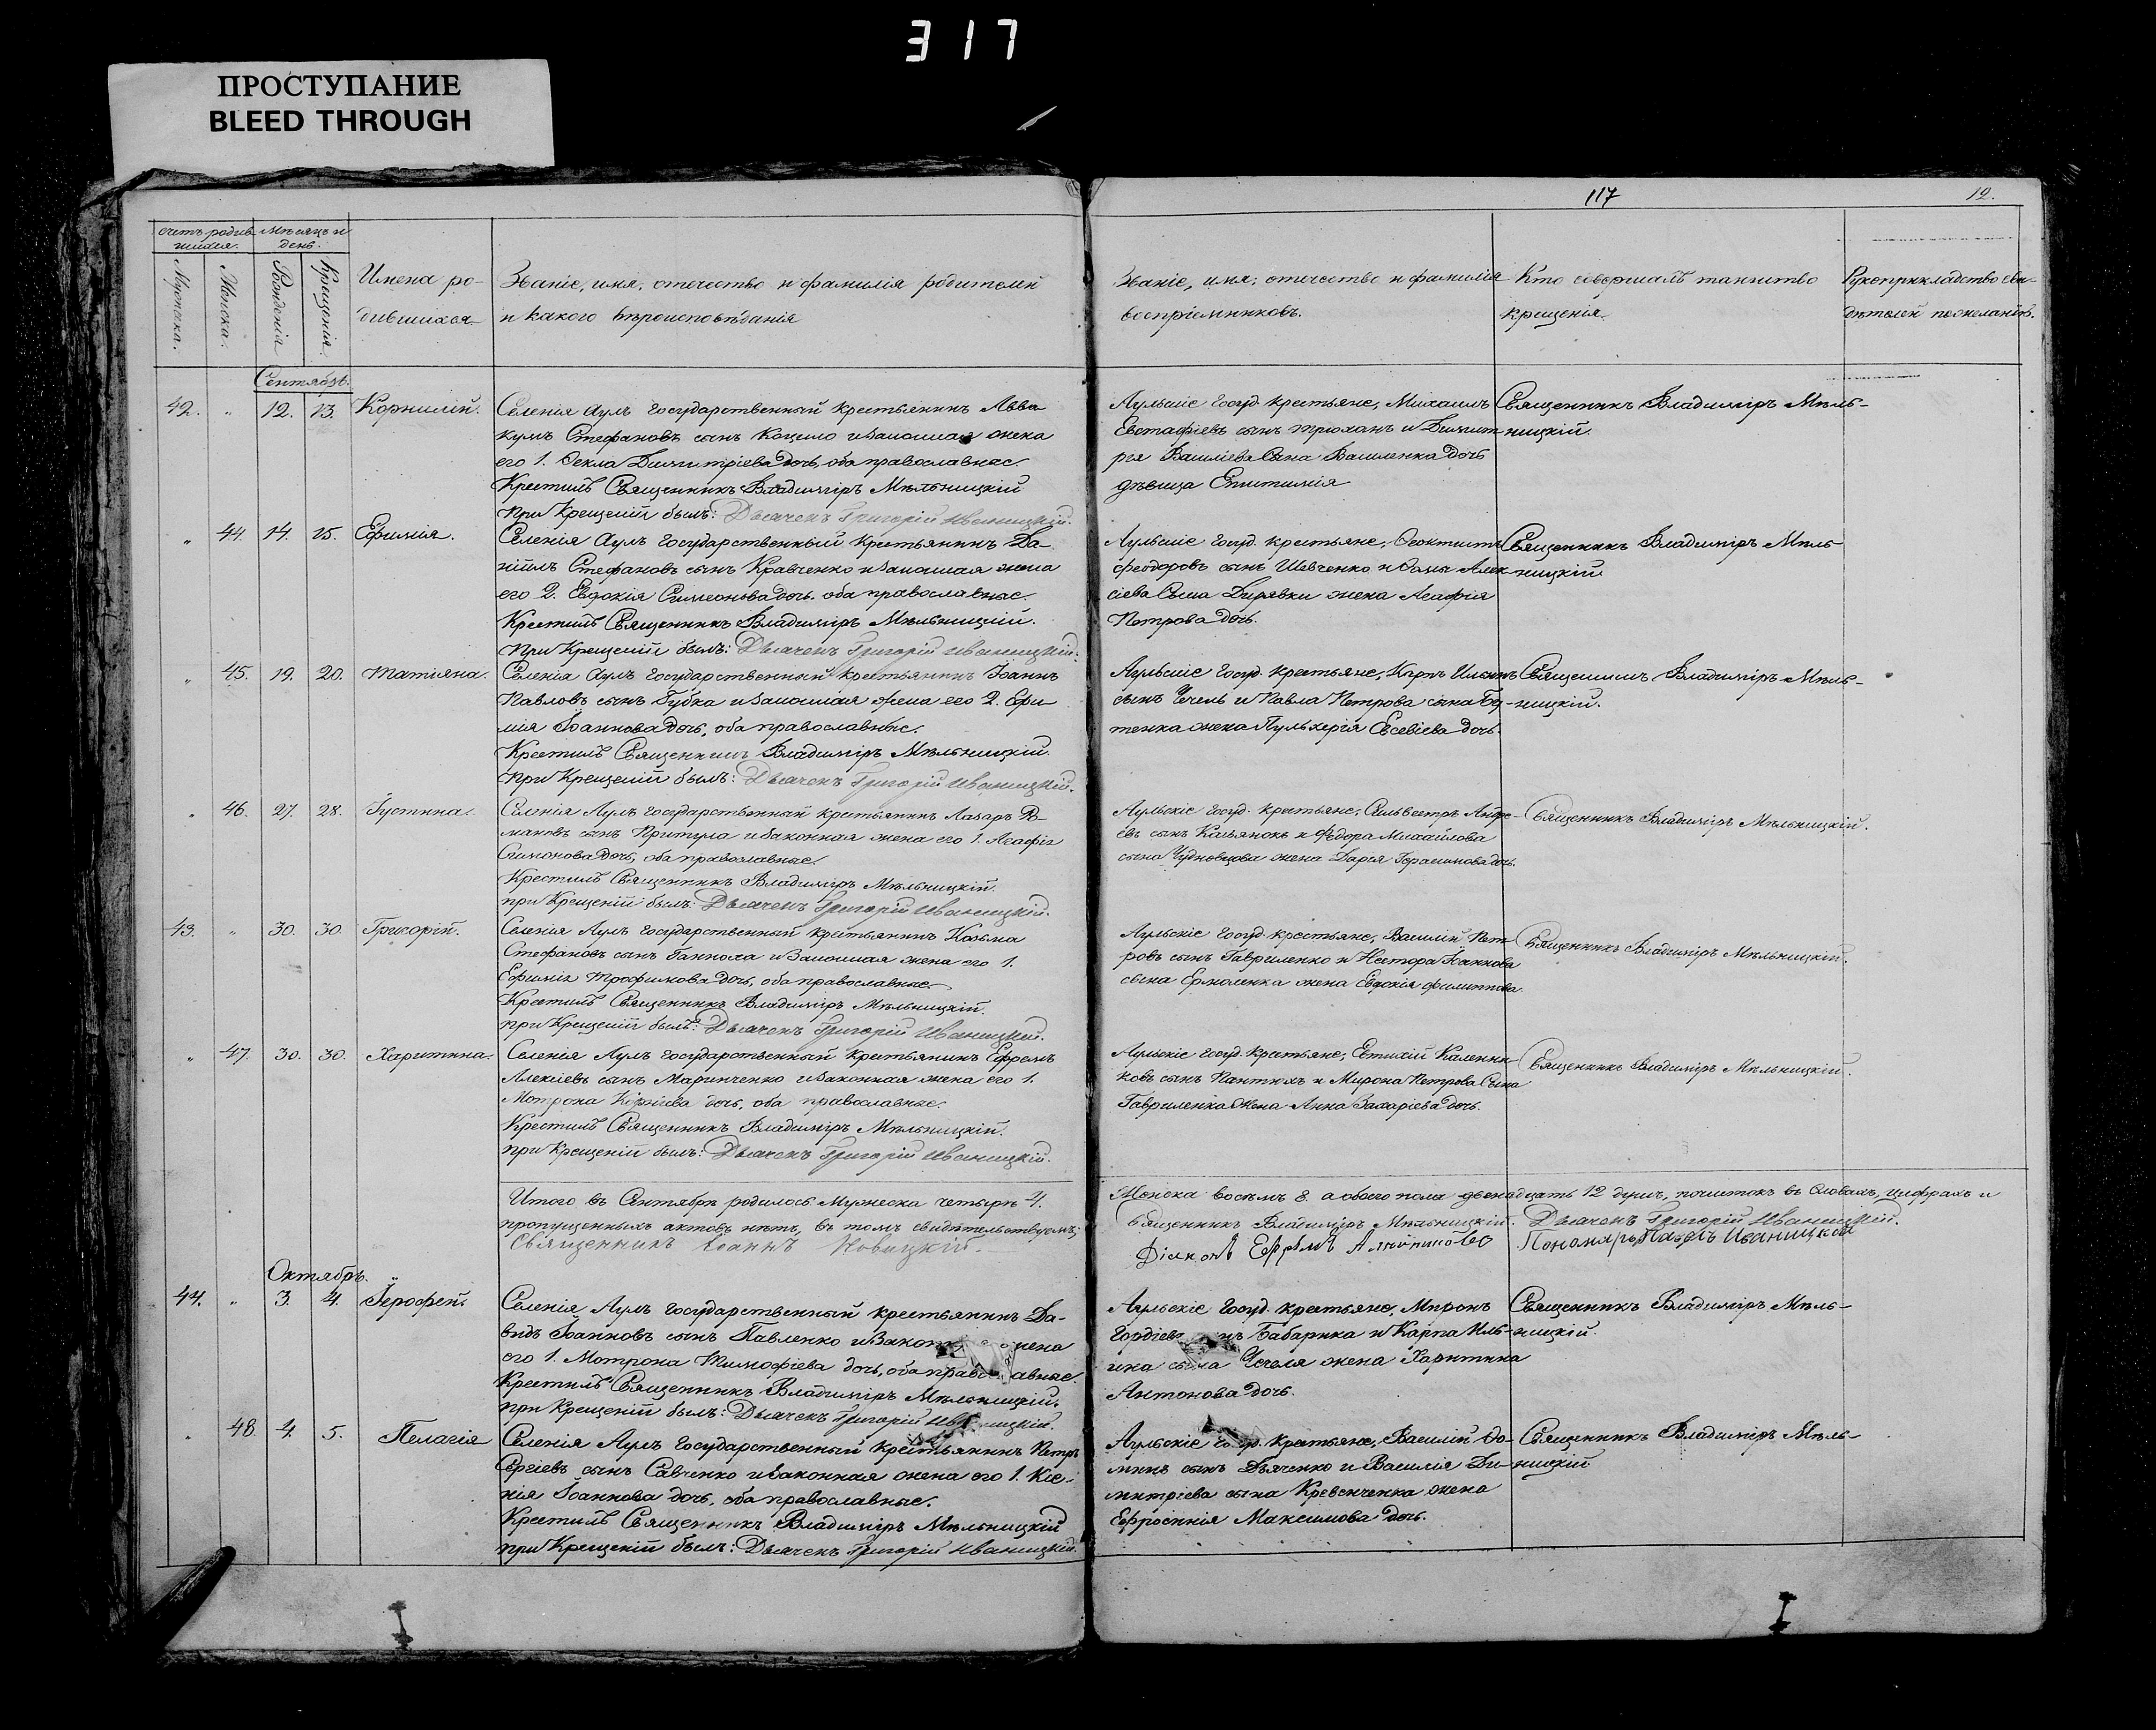 317
ПРОСТУПАНИЕ
BLEED THROUGH
117
12.
Счетъ родив-
шихся.
Мѣсяцъ и
день.
Мужеска.
Женска.
Рожденія
Крещенія.
Имена ро-
дившихся.
Званіе, имя, отечество и фамилія родителей
и какого вѣроисповѣданія
Званіе, имя, отечество и фамилія
воспріемниковъ.
Кто совершалъ таинство
крещенія.
Рукоприкладство сви-
дѣтелей по желанію.
Сентябрь.
42. " 12. 13. Корнилій.
Селенія Аулъ государственный крестьянинъ Авва-
кумъ Стефановъ сынъ Коцило и законная жена
его 1. Өекла Димитріева дочь, оба православные.
Крестилъ Священникъ Владиміръ Мѣльницкій
при Крещеніи былъ: Дьячекъ Григорій Иваницкій.
Аульскіе госуд. крестьяне, Михаилъ
Евстафіевъ сынъ Трюханъ и Димит
рія Василіева сына Василенка дочь
дѣвица Епитимія
Священникъ Владиміръ Мѣль-
ницкій.
" 44. 14. 15. Ефимія.
Селенія Аулъ государственный крестьянинъ Да-
ніилъ Стефановъ сынъ Кравченко и законная жена
его 2. Евдокія Симеонова дочь. оба православные.
Крестилъ Священникъ Владиміръ Мѣльницкій.
при Крещеніи былъ: Дьячекъ Григорій Иваницкій.
Аульскіе госуд. крестьяне, Өеоктистъ
Феодоровъ сынъ Шевченко и Өомы Алек-
сіева Сына Дирявки жена Агафія
Петрова дочь.
Священникъ Владиміръ Мѣль
ницкій
" 45. 19. 20. Татіяна.
Селенія Аулъ государственный крестьянинъ Іоаннъ
Павловъ сынъ Губка и законная жена его 2. Ефи
мія Іоаннова дочь, оба православные.
Крестилъ Священникъ Владиміръ Мѣльницкій.
при Крещеніи былъ: Дьячекъ Григорій Иваницкій.
Аульскіе госуд. крестьяне, Карпъ Ильинъ
сынъ Чечель и Павла Петрова сына Бу-
тенка жена Пульхерія Евсевіева дочь.
Священникъ Владиміръ Мѣль-
ницкій.
" 46. 27. 28. Іустина.
Селенія Аулъ государственный крестьянинъ Лазарь Ро-
мановъ сынъ Притула и законная жена его 1. Агафія
Симонова дочь, оба православные.
Крестилъ Священникъ Владиміръ Мѣльницкій.
при Крещеніи былъ: Дьячекъ Григорій Иваницкій.
Аульскіе госуд. крестьяне, Сильвестръ Андре-
евъ сынъ Касьянокъ и Фѣдора Михайлова
сына Чудновцова жена Дарія Герасимова дочь.
Священникъ Владиміръ Мѣльницкій.
43. " 30. 30. Григорій.
Селенія Аулъ государственный крестьянинъ Козьма
Стефановъ сынъ Ганноха и законная жена его 1.
Ефимія Трофимова дочь, оба православные.
Крестилъ Священникъ Владиміръ Мѣльницкій.
при Крещеніи былъ: Дьячекъ Григорій Иваницкій.
Аульскіе госуд. крестьяне, Василій Пет-
ровъ сынъ Гавриленко и Нестора Іоаннова
сына Ермоленка жена Евдокія Филиппова.
Священникъ Владиміръ Мѣльницкій.
" 47. 30. 30. Харитина.
Селенія Аулъ государственный крестьянинъ Ефремъ
Алексіевъ сынъ Маринченко и законная жена его 1.
Мотрона Корніева дочь, оба православные.
Крестилъ Священникъ Владиміръ Мѣльницкій.
при Крещеніи былъ: Дьячекъ Григорій Иваницкій.
Аульскіе госуд. крестьяне, Евтихій Калинни-
ковъ сынъ Пантюхъ и Мирона Петрова Сына
Гавриленка жена Анна Захаріева дочь.
Священникъ Владиміръ Мѣльницкій.
Итого въ Сентябрѣ родилось Мужеска четырѣ 4. Женска восѣмъ 8. а обоего пола двенадцать 12 душъ, почистокъ въ словахъ, цифрахъ и
пропущенныхъ актовъ нѣтъ, въ томъ свидѣтельствуемъ: Священникъ Владиміръ Мѣльницкій. Дьячекъ Григорій Иваницкій.
Священникъ Іоаннъ Новицкій. Діаконъ Ефремъ Пономарь Павелъ Иваницкій
Октябрь.
44. " 3. 4. Іерофей.
Селенія Аулъ государственный крестьянинъ Да-
видъ Іоанновъ сынъ Павленко и закон жена
его 1. Мотрона Тимофіева дочь, оба православные.
Крестилъ Священникъ Владиміръ Мѣльницкій.
при Крещеніи былъ: Дьячекъ Григорій Иваницкій.
Аульскіе госуд. крестьяне, Миронъ
Гордіевъ сынъ Бабарика и Карпа Иль-
ина сына Чечеля жена Харитина
Антонова дочь.
Священникъ Владиміръ Мѣль-
ницкій.
" 48. 4. 5. Пелагія
Селенія Аулъ государственный крестьянинъ Петръ
Сергіевъ сынъ Савченко и законная жена его 1. Ксе-
нія Іоаннова дочь, оба православные.
Крестилъ Священникъ Владиміръ Мѣльницкій
при Крещеніи былъ: Дьячекъ Григорій Иваницкій.
Аульскіе госуд. крестьяне, Василій Өо-
минъ сынъ Дьяченко и Василія Ди-
митріева сына Кревенченка жена
Ефросинія Максимова дочь.
Священникъ Владиміръ Мѣль-
ницкій